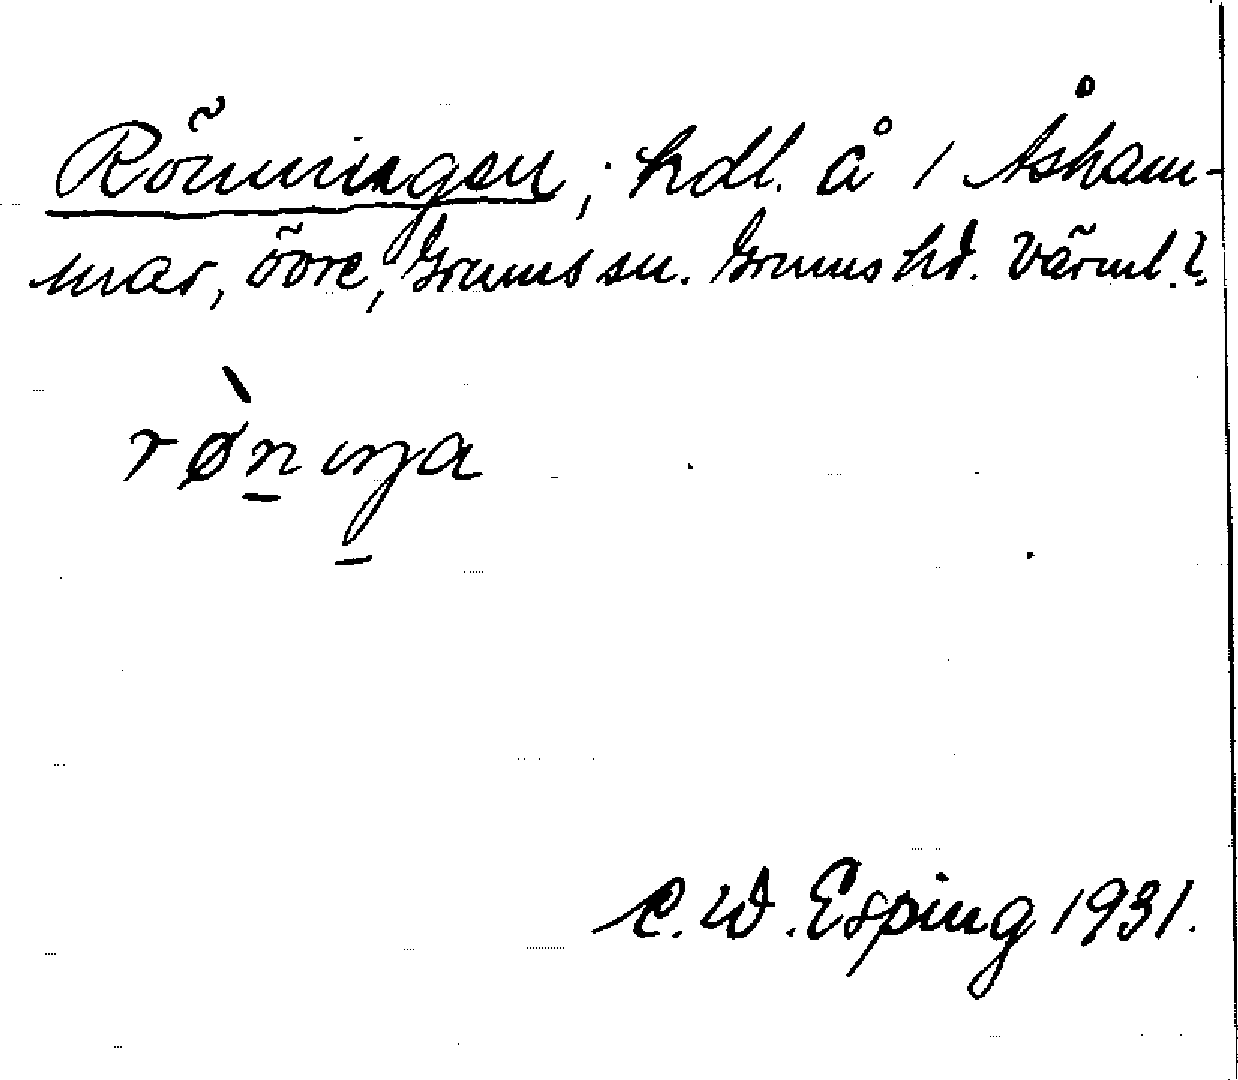 Rönningen, hdl. å 1 Åsham-
mar, övre, Grums sn. Grums hd. Värml.
rø̀niŋa
C. W. Esping 1931.